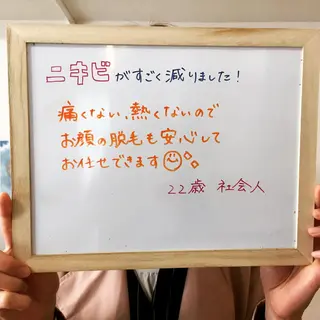 ニキビがすごく減りました!
痛くない、熱くないので
お顔の脱毛も安心して
お任せできます
22歳 社会人